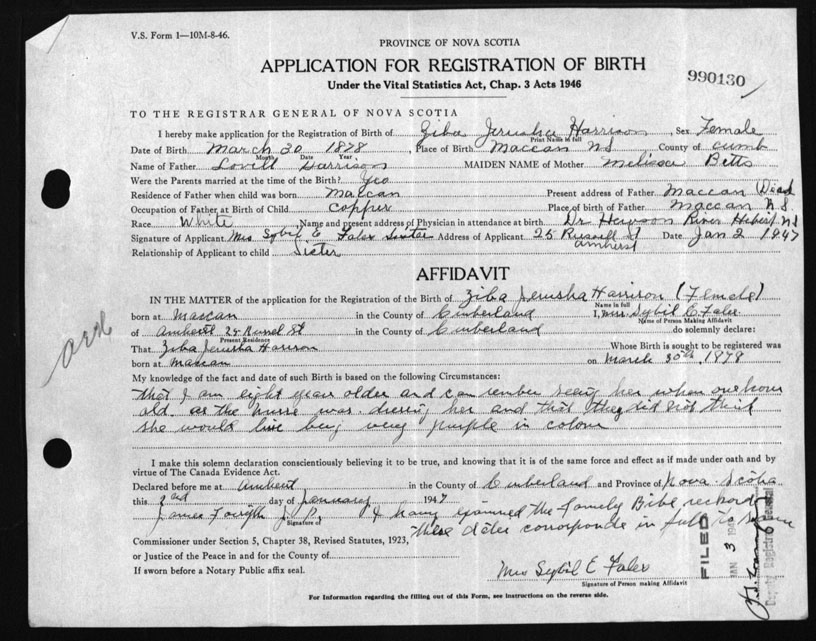 V.S. Form 1—10M-8-46.
PROVINCE OF NOVA SCOTIA
APPLICATION FOR REGISTRATION OF BIRTH
990130
Under the Vital Statistics Act, Chap. 3 Acts 1946
TO THE REGISTRAR GENERAL OF NOVA SCOTIA
I hereby make application for the Registration of Birth of Ziba Jerusha Harrison, Sex Female
Print Name in full
Date of Birth March 30 1878, Place of Birth Maccan NS County of Cumb
Month Date Year
Name of Father Lovell Harrison MAIDEN NAME of Mother Melissa Betts
Were the Parents married at the time of Birth? Yes
Residence of Father when child was born Maccan Present address of Father Maccan (Dead
Occupation of Father at Birth of Child Place of birth of Father Maccan N.S
Race White Name and present address of Physician in attendance at birth Dr Hewson River Hebert NS
Signature of Applicant Mrs Sybil E Faler Sister Address of Applicant 25 Russell St Amherst Date Jan 2 1947
Relationship of Applicant to child Sister
AFFIDAVIT
IN THE MATTER of the application for the Registration of the Birth of Ziba Jerusha Harrison (Female)
Name in full
born at Maccan in the County of Cumberland I, Mrs. Sybil E. Faler
Name of Person Making Affidavit
of Amherst 25 Russel St in the County of Cumberland do solemnly declare:
Present Residence
That Ziba Jerusha Harrison Whose Birth is sought to be registered was
born at Maccan on March 30th, 1878
My knowledge of the fact and date of such Birth is based on the following Circumstances:
that I am eight years older and can rember seeing her when one hour
old. as the nurse was dressing her and that they did not think
she would live being very purple in colour
I make this solemn declaration conscientiously believing it to be true, and knowing that it is of the same force and effect as if made under oath and by
virtue of The Canada Evidence Act.
Declared before me at Amherst in the County of Cumberland and Province of Nova Scotia
this 2nd day of January 1947
James Forsyth J.P. I having examined the family Bible record
Signature of
these dates corresponds in full to same
Commissioner under Section 5, Chapter 38, Revised Statutes, 1923,
or Justice of the Peace in and for the County of
If sworn before a Notary Public affix seal.
Mrs Sybil E Faler
Signature of Person making Affidavit
For Information regarding the filling out of this Form, see instructions on the reverse side.
FILED
JAN 3 194
Deputy Registrar General